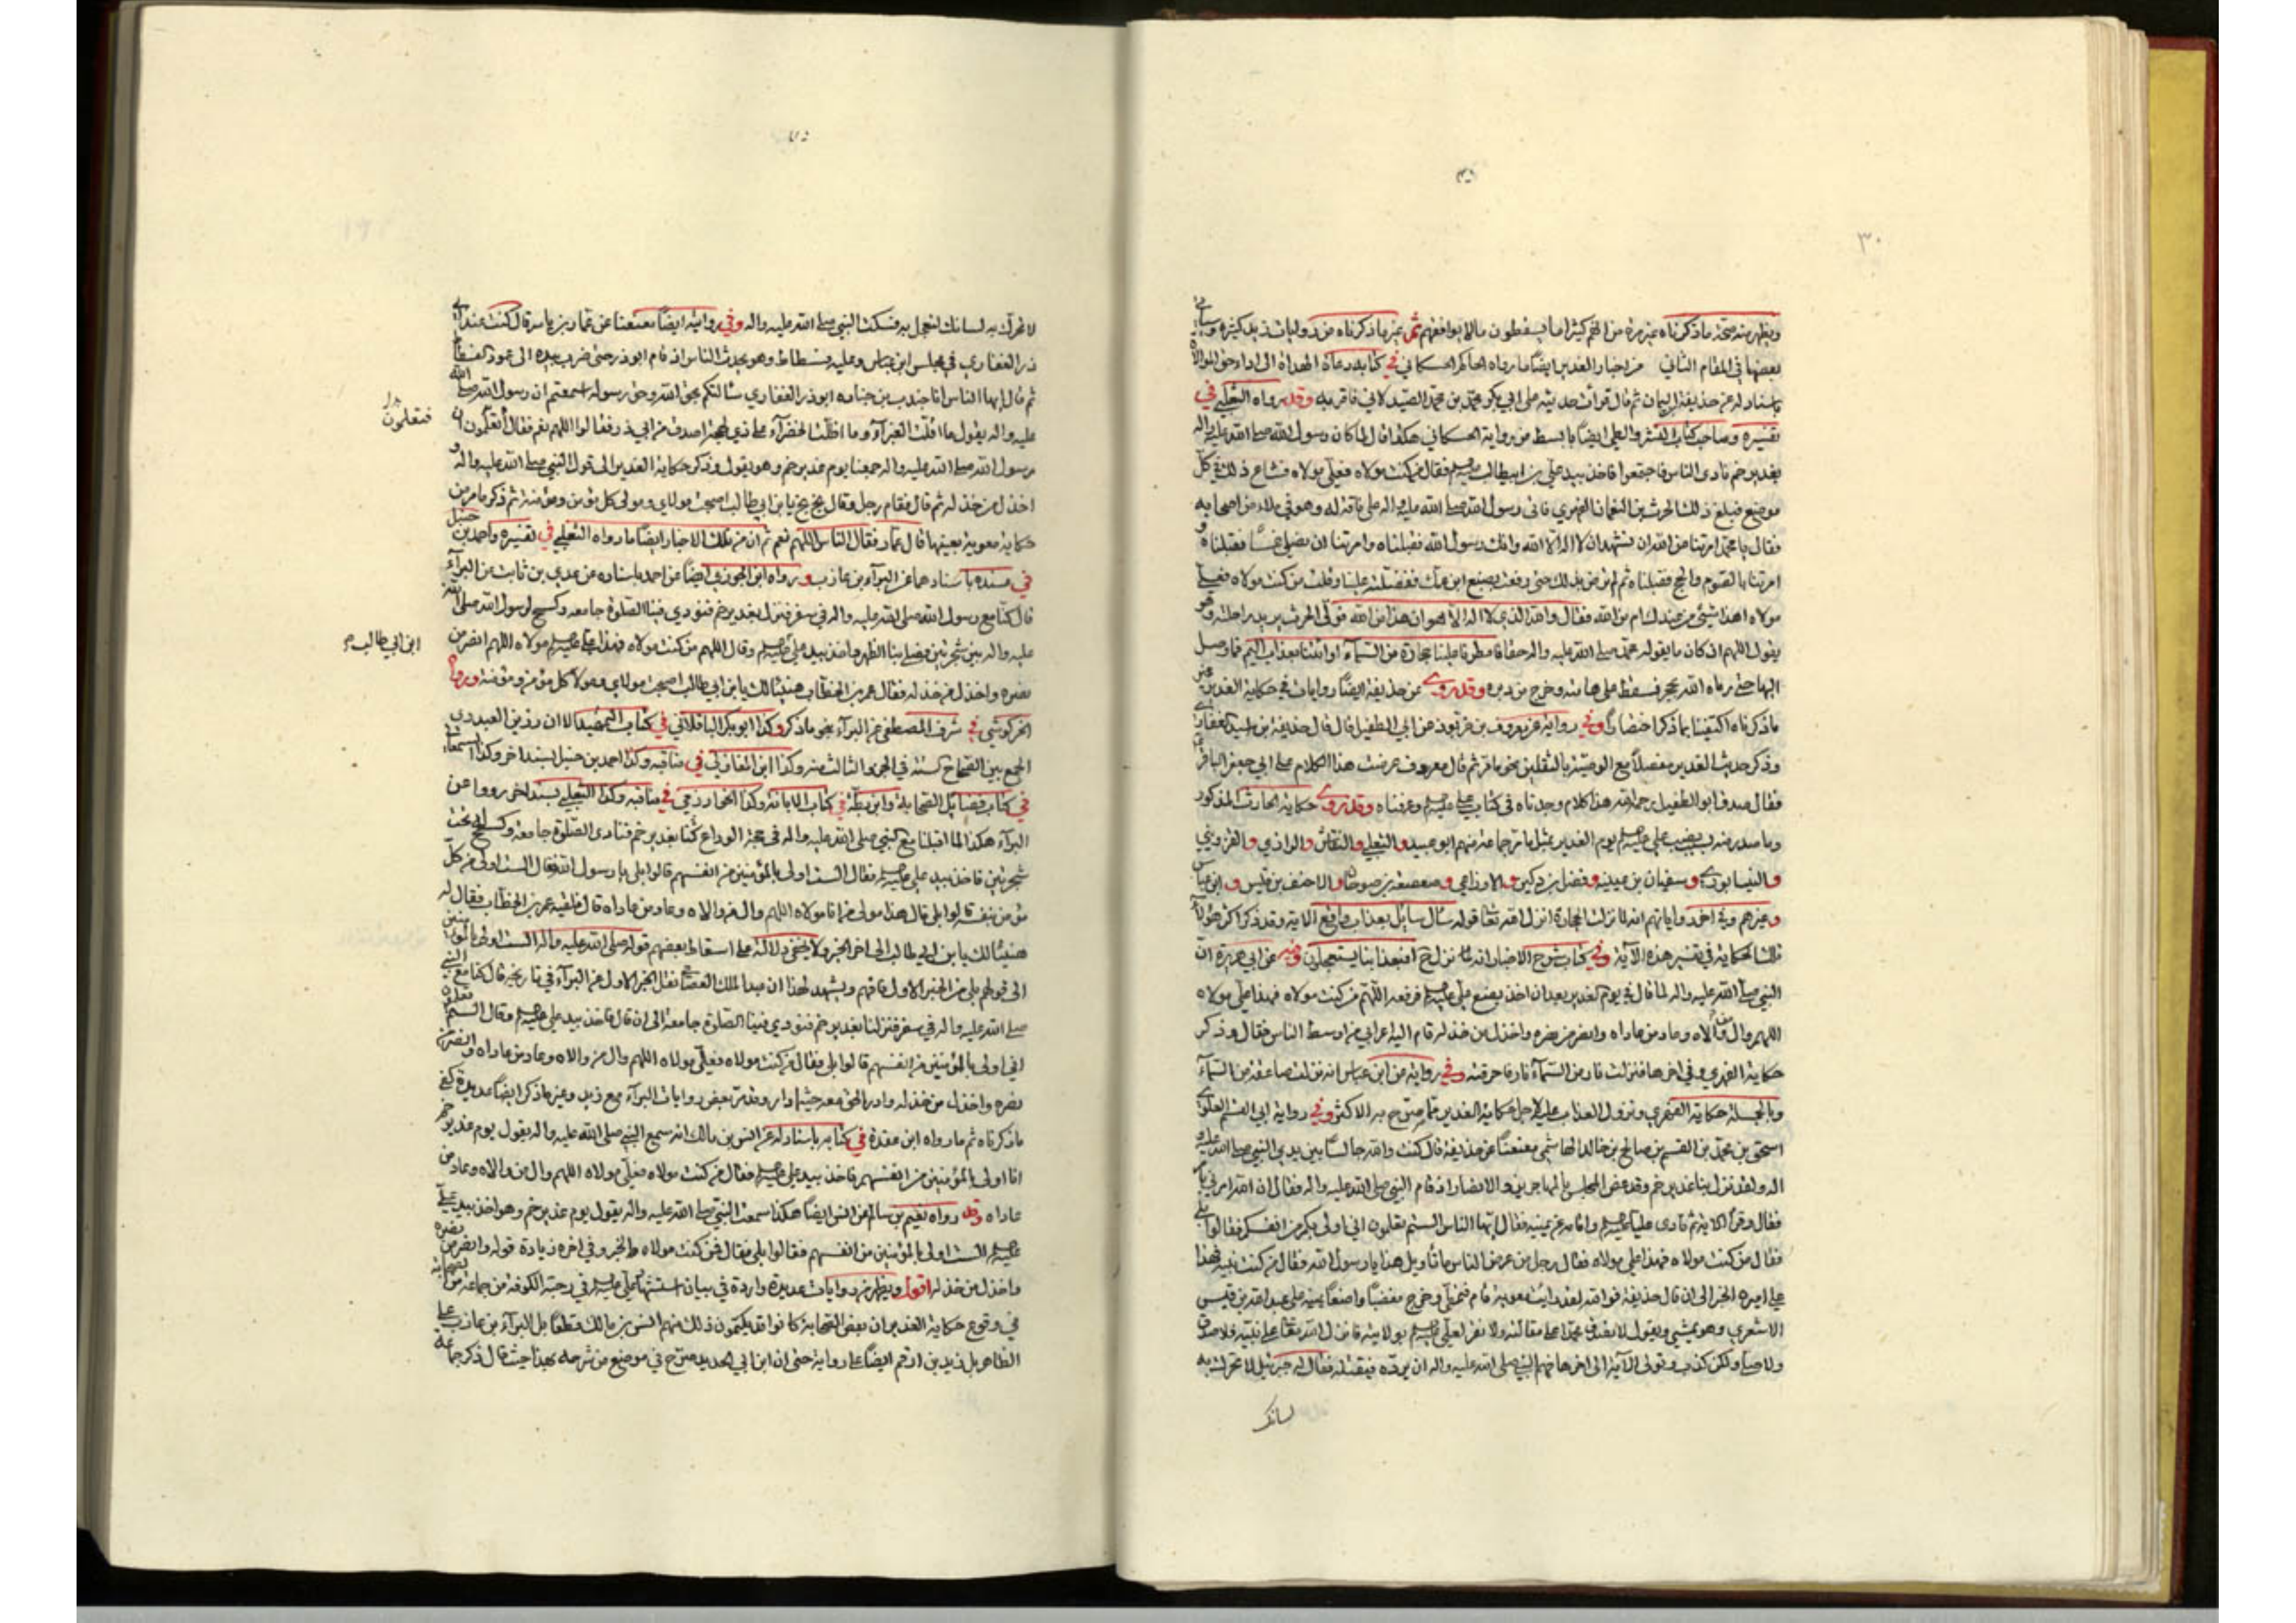 ٣٠
ويظهر منه صحة ما ذكرناه غير مرة من انهم كثيرا ما يسقطون ما لا يوافقهم ثم غير ما ذكرناه من روايات زيد كثيرة وسيأتي
بعضها في المقام الثاني من اخبار الغدير ايضا ما رواه الحاكم الحسكاني في كتابه دعاة الهداة الى اداء حق الموالاة
باسناد له عن حذيفة اليمان ثم قال قرأت حديثه على ابي بكر محمد بن محمد الصيدلاني فاقر به وقد رواه الثعلبي في
تفسيره وصاحب كتاب النشر والطي ايضا بابسط من رواية الحسكاني هكذا قال لما كان رسول الله صلى الله عليه واله
بغدير خم نادى الناس فاجتمعوا فاخذ بيد علي بن ابيطالب فقال من كنت مولاه فعلي مولاه فشاع ذلك في كل
موضع فبلغ ذلك الحرث بن النعمان الفهري فاتى رسول الله صلى الله عليه واله على ناقة له وهو في ملاء من اصحابه
فقال يا محمد امرتنا عن الله ان نشهد ان لا اله الا الله وانك رسول الله فقبلناه وامرتنا ان نصلي خمسا فقبلناه و
امرتنا بالصوم والحج فقبلناه ثم لم ترض بذلك حتى رفعت بضبع ابن عمك ففضلته علينا وقلت من كنت مولاه فعلي
مولاه اهذا شيء من عندك ام من الله فقال والله الذي لا اله الا هو ان هذا من الله فولى الحرث يريد راحلته وهو
يقول اللهم ان كان ما يقوله محمد صلى الله عليه واله حقا فامطر علينا حجارة من السماء او ائتنا بعذاب اليم فما وصل
اليها حتى رماه الله بحجر فسقط على هامته وخرج من دبره وقد روي عن حذيفة ايضا روايات في حكاية الغدير غير
ما ذكرناه اكتفينا بما ذكر اختصارا وفي رواية عن معروف بن خربوذ عن ابي الطفيل قال قال حذيفة بن اسيد الغفاري
وذكر حديث الغدير مفصلا مع الوصية بالثقلين نحو ما مر ثم قال معروف عرضت هذا الكلام على ابي جعفر الباقر
فقال صدق ابو الطفيل رحمه الله هذا كلام وجدناه في كتاب علي وعرفناه وقد روي حكاية الحارث المذكور
وما صدر منه بنصب علي يوم الغدير بمثل ما مر جماعة منهم ابو عبيد والثعلبي والنقاش والرازي والقزويني
والنيسابوري وسفيان بن عيينه وفضل بن دكين والاوزاعي وصعصعة بن صوحان والاحنف بن قيس وابن عباس
وغيرهم وفي اخر رواياتهم انه لما نزلت الحجارة انزل الله تعالى قوله سأل سائل بعذاب واقع الاية وقد ذكر اكثر هؤلاء
تلك الحكاية في تفسير هذه الآية وفي كتاب شرح الاخبار انه لما نزل ح افبعذابنا يستعجلون وفيه عن ابي هريرة ان
النبي صلى الله عليه واله لما قال في يوم الغدير بعد ان اخذ بضبع علي فرفعه اللهم من كنت مولاه فهذا علي مولاه
اللهم وال من والاه وعاد من عاداه وانصر من نصره واخذل من خذله قام اليه اعرابي من اوسط الناس فقال وذكر
حكاية الفهري وفي اخرها فنزلت نار من السماء فاحرقته وفي رواية عن ابن عباس انه نزلت صاعقة من السماء
وبالجملة حكاية الفهري ونزول العذاب عليه لاجل حكاية الغدير مما صرح به الاكثر وفي رواية ابي القسم العلوي
اسحق بن محمد بن القسم بن صالح بن خالد الهاشمي معنعنا عن حذيفة قال كنت والله جالسا بين يدي النبي صلى الله عليه و
اله ولقد نزل بنا غدير خم وقد غص المجلس بالمهاجرين والانصار اذ قام النبي صلى الله عليه واله فقال ان الله امرني بامر
فقال وقرأ الاية ثم نادى عليا واقامه عن يمينه فقال ايها الناس الستم تعلمون اني اولى بكم من انفسكم فقالوا بلى
فقال من كنت مولاه فهذا علي مولاه فقال رجل من عرض الناس ما تأويل هذا يا رسول الله فقال من كنت نبيه فهذا
علي اميره الخبر الى ان قال حذيفة فوالله لقد رايت معوية قام فتمطى وخرج مغضبا واضعا يمينه على عبد الله بن قيس
الاشعري وهو يمشي ويقول لا نصدق محمدا على مقالته ولا نقر لعلي بولايته فانزل الله تعالى على نبيه فلا صدق
ولا صلى ولكن كذب وتولى الآية الى اخرها فهم النبي صلى الله عليه واله ان يرده فيقتله فقال له جبرئيل لا تحرك به
لسانك
لا تحرك به لسانك لتعجل به فسكت النبي صلى الله عليه واله وفي رواية ايضا معنعنا عن عمار بن ياسر قال كنت عند ابي
ذر الغفاري في مجلس ابن عباس وعليه فسطاط وهو يحدث الناس اذ قام ابو ذر حتى ضرب بيده الى عمود الفسطاط
ثم قال ايها الناس انا جندب بن جناده ابو ذر الغفاري سألتكم بحق الله وحق رسوله اسمعتم ان رسول الله صلى الله
عليه واله يقول ما اقلت الغبراء وما اظلت الخضراء على ذي لهجة اصدق من ابي ذر فقالوا اللهم نعم فقال أتعلمون ان
فتعلمون
رسول الله صلى الله عليه واله جمعنا يوم غدير خم وهو يقول وذكر حكاية الغدير الى قول النبي صلى الله عليه واله و
اخذل من خذله ثم قال فقام رجل وقال بخ بخ يا بن ابي طالب اصبحت مولاي ومولى كل مؤمن ومؤمنة ثم ذكر ما مر من
حكاية معوية بعينها قال عمار فقال الناس اللهم نعم ثم ان من تلك الاخبار ايضا ما رواه الثعلبي في تفسيره واحمد بن حنبل
في مسنده باسنادهما عن البراء بن عازب ورواه ابن الجوزي ايضا عن احمد باسناده عن عدي بن ثابت عن البراء
قال كنا مع رسول الله صلى الله عليه واله في سفر فنزل بغدير خم فنودي فينا الصلوة جامعة وكسح لرسول الله صلى الله
عليه واله بين شجرتين فصلى بنا الظهر واخذ بيد علي وقال اللهم من كنت مولاه فهذا علي مولاه اللهم انصر من
ابن ابي طالب
نصره واخذل من خذله فقال عمر بن الخطاب هنيئا لك يا بن ابي طالب اصبحت مولاي ومولا كل مؤمن ومؤمنة
الخركوشي في شرف المصطفى عن البراء نحو ما ذكر وكذا ابو بكر الباقلاني في كتاب التمهيد الا ان رزين العبدري
الجمع بين الصحاح الستة في الجزء الثالث منه وكذا ابن المغازلي في مناقبه وكذا احمد بن حنبل بسند اخر وكذا السمعاني
في كتاب فضائل الصحابة وابن بطة في كتاب الابانة وكذا الخوارزمي في مناقبه وكذا الثعلبي بسند اخر رووا عن
البراء هكذا لما اقبلنا مع النبي صلى الله عليه واله في حجة الوداع كنا بغدير خم فنادى الصلوة جامعة وكسح للنبي تحت
شجرتين فاخذ بيد علي فقال الست اولى بالمؤمنين من انفسهم قالوا بلى يا رسول الله فقال الست اولى من كل
مؤمن بنفسه قالوا بلى قال هذا مولى من انا مولاه اللهم وال من والاه وعاد من عاداه قال فلقيه عمر بن الخطاب فقال له
هنيئا لك يا بن ابي طالب الى اخر الخبر ولا يخفى دلالة على اسقاط بعضهم قوله صلى الله عليه واله الست اولى بالمؤمنين
الى قولهم بلى من الخبر الاول ويشهد لهذا ان عبد الملك نقل الخبر الاول عن البراء في تاريخه قال كنا مع النبي
صلى الله عليه واله في سفر فنزلنا بغدير خم فنودي فينا الصلوة جامعة الى ان قال فاخذ بيد علي وقال الستم تعلمون
اني اولى بالمؤمنين من انفسهم قالوا بلى فقال من كنت مولاه فعلي مولاه اللهم وال من والاه وعاد من عاداه وانصر من
نصره واخذل من خذله وادر الحق معه حيثما دار وقد مر بعض روايات البراء مع زيد وغير ما ذكر ايضا عديدة كفى
ما ذكرناه ثم ما رواه ابن عقدة في كتابه باسناد له عن انس بن مالك انه سمع النبي صلى الله عليه واله يقول يوم غدير خم
انا اولى بالمؤمنين من انفسهم فاخذ بيد علي فقال من كنت مولاه فعلي مولاه اللهم وال من والاه وعاد من
عاداه وقد رواه نعيم بن سالم عن انس ايضا هكذا سمعت النبي صلى الله عليه واله يقول يوم غدير خم وهو اخذ بيد علي
الست اولى بالمؤمنين من انفسهم فقالوا بلى فقال فمن كنت مولاه الخبر وفي اخره زيادة قوله وانصر من نصره
واخذل من خذله اقول ويظهر من روايات عديدة واردة في بيان استشهاد علي في رحبة الكوفة من جماعة من الصحابة
في وقوع حكاية الغدير ان بعض الصحابة كانوا قد يكتمون ذلك منهم انس بن مالك قطعا بل البراء بن عازب على
الظاهر بل زيد بن ارقم ايضا على رواية حتى ان ابن ابي الحديد صرح في موضع من شرحه بهذا حيث قال ذكر جماعة